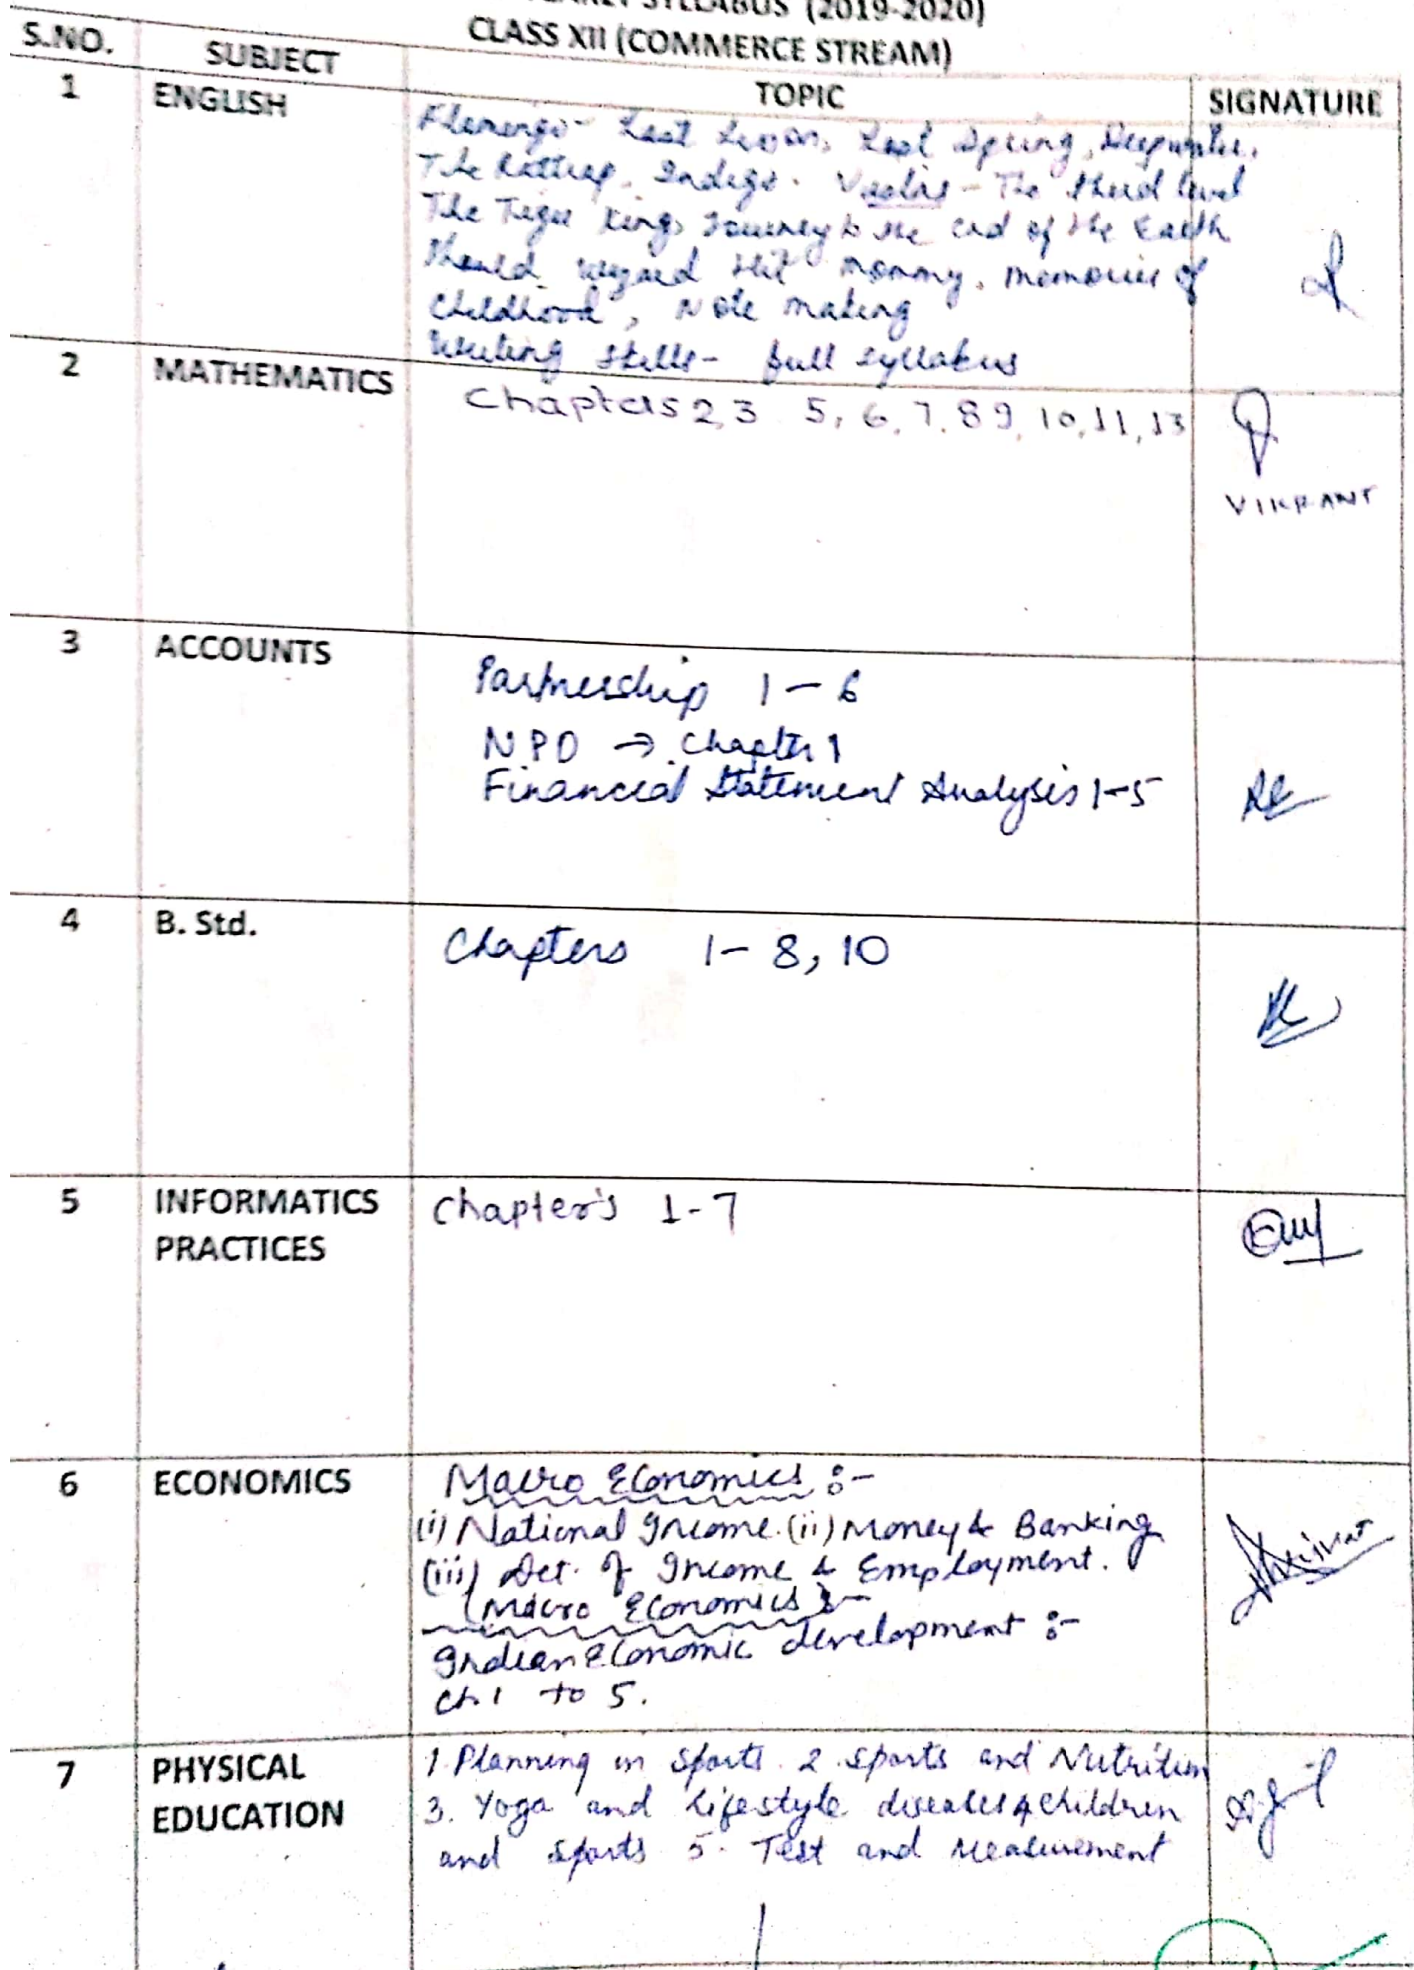 SYLLABUS (2019-2020)
CLASS XII (COMMERCE STREAM)
S.NO. SUBJECT TOPIC SIGNATURE
1 ENGLISH
Flamingo- Last Lesson, Lost Spring, Deepwater,
The Rattrap, Indigo. Vistas - The third level
The Tiger King, Journey to the end of the Earth
Should wizard Hit mommy, memories of
Childhood, Note making
Writing skills- full syllabus
2 MATHEMATICS
Chapters 2, 3 5, 6, 7, 8 9, 10, 11, 13
VIKRANT
3 ACCOUNTS
Partnership 1 - 6
NPO → Chapter 1
Financial Statement Analysis 1-5
4 B. Std.
Chapters 1- 8, 10
5 INFORMATICS PRACTICES
Chapter's 1-7
6 ECONOMICS
Macro Economics :-
(i) National Income. (ii) Money & Banking
(iii) Det. of Income & Employment.
(Micro Economics) :-
Indian Economic development :-
Ch. 1 to 5.
7 PHYSICAL EDUCATION
1. Planning in sports. 2. sports and Nutrition
3. Yoga and Lifestyle diseases 4 children
and sports 5. Test and Measurement